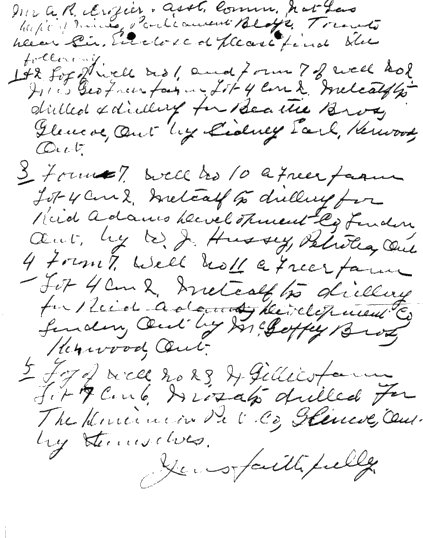 Mr A. R. Crozier. Asst. Comm. Nat Gas
Dept of Mines, Parliament Bldgs, Toronto
Dear Sir. Enclosed please find the
following
1&2 Log of well No 1, and Form 7 of well No 2
Geo Freer farm Lot 4 Con 2, Metcalf tp
drilled & drilling for Beattie Bros,
Glencoe, Ont by Sidney Earl, Kerwood,
Ont.
3 Form 7. Well No 10 a Freer farm
Lot 4 Con 2, Metcalf tp drilling for
Reid Adams Development Co London
Ont. by W. J. Hussey, Petrolea, Ont
4 Form 7. Well No 11 a Freer farm
Lot 4 Con 2, Metcalf tp drilling
for Reid Adams Development Co
London, Ont by McGoffey Bros,
Kerwood, Ont.
5 Log of well No 23, Gillies farm
Lot 7 Con 6, Mosa tp drilled For
The Dominion Pet. Co, Glencoe, Ont.
by themselves.
Yours faithfully